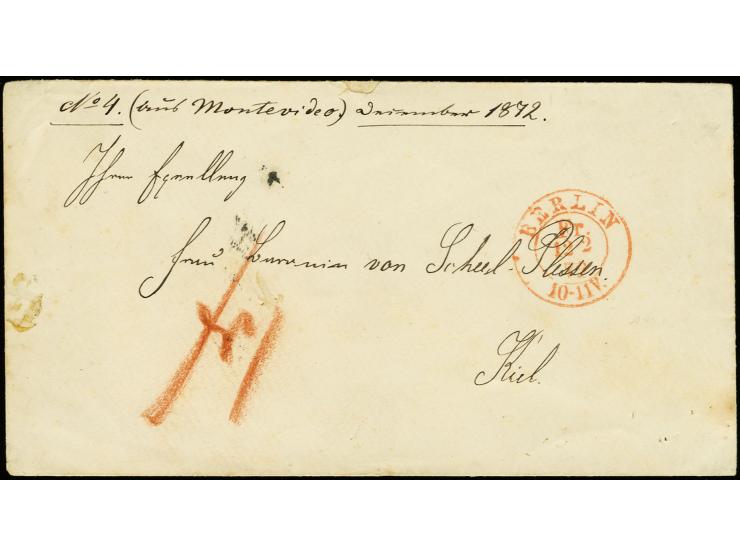 No 4. (aus Montevideo.) December 1872.
Ihrer Excellenz
Frau Baronin von Scheel-Plessen.
Kiel.
BERLIN
10-11V.